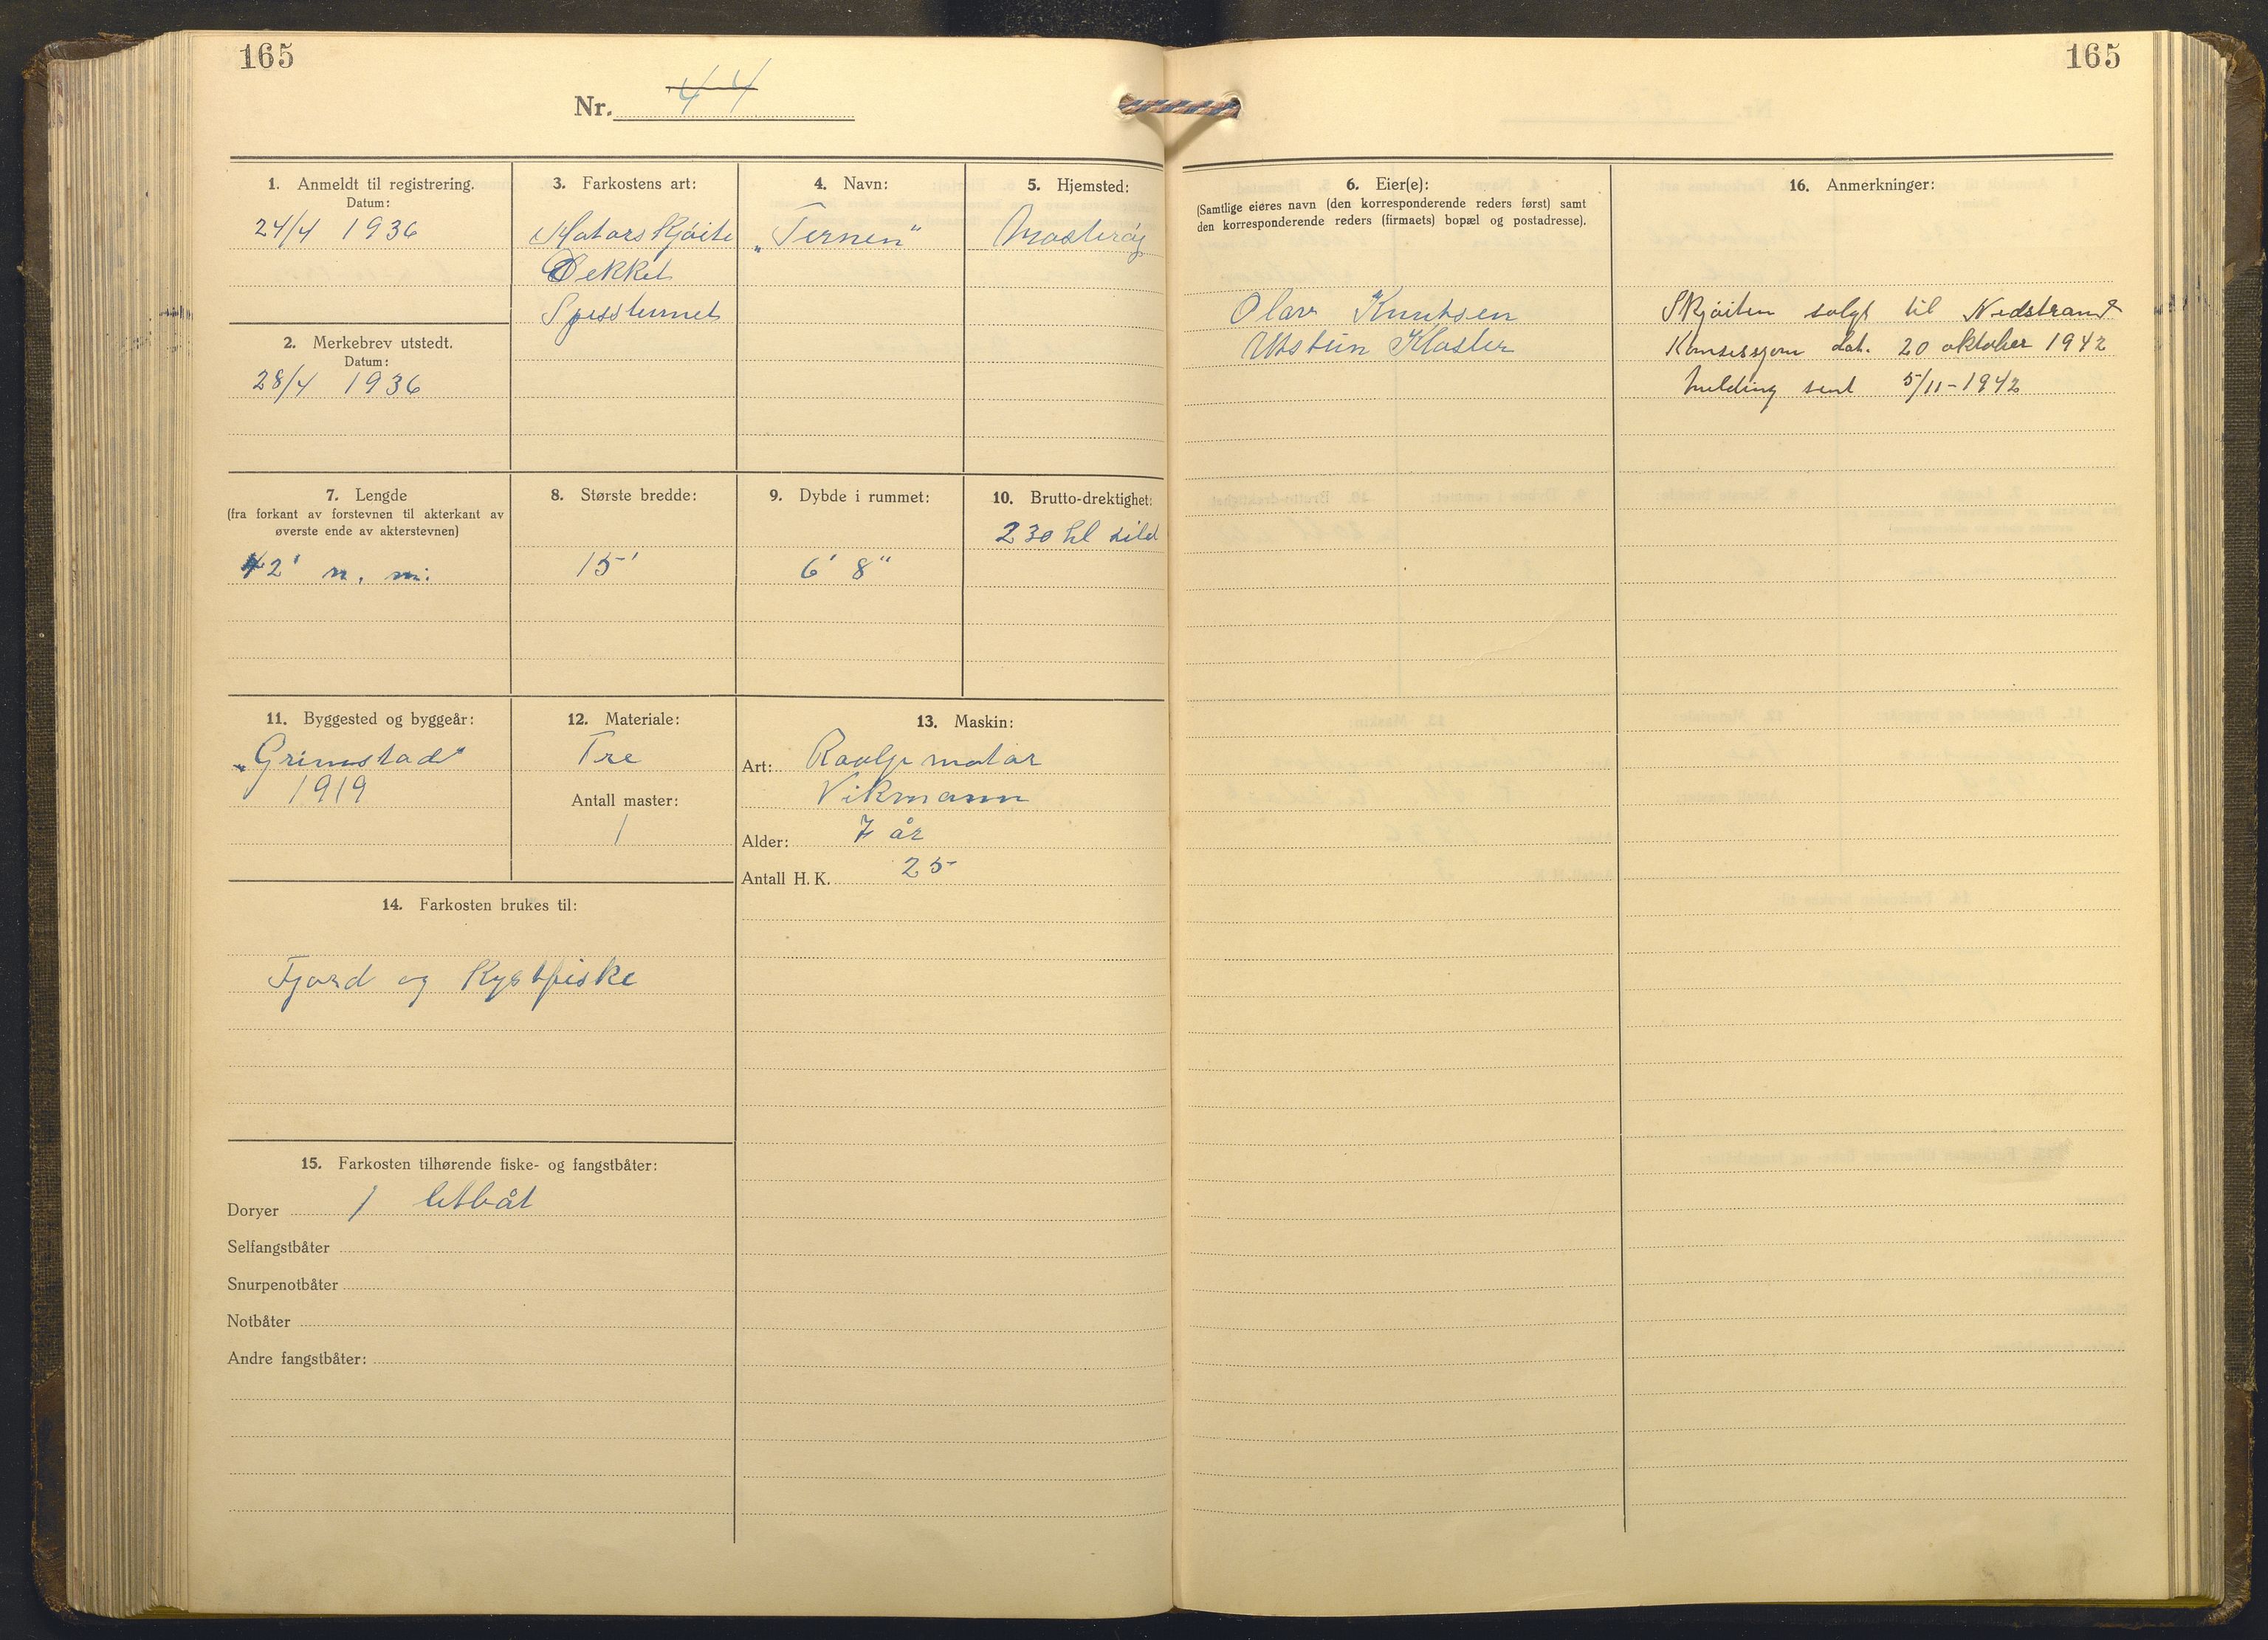 165
Nr. 44
1. Anmeldt til registrering.
Datum:
24/4 1936
2. Merkebrev utstedt.
Datum:
28/4 1936
3. Farkostens art:
Motorskjøite
Dekket
Spisstevnet
4. Navn:
„Ternen"
5. Hjemsted:
Mosterøy
7. Lengde
(fra forkant av forstevnen til akterkant av
øverste ende av akterstevnen)
42' n. m.
8. Største bredde:
15'
9. Dybde i rummet:
6' 8"
10. Brutto-drektighet:
230 hl sild
11. Byggested og byggeår:
„Grimstad"
1919
12. Materiale:
Tre
Antall master:
1
13. Maskin:
Art: Raolje motor
Vikmann
Alder: 7 år
Antall H. K. 25
14. Farkosten brukes til:
Fjord og Kystfiske
15. Farkosten tilhørende fiske- og fangstbåter:
Doryer 1 letbåt
Selfangstbåter
Snurpenotbåter
Notbåter
Andre fangstbåter:
165
6. Eier(e):
(Samtlige eieres navn (den korresponderende reders først) samt
den korresponderende reders (firmaets) bopæl og postadresse).
Olav Knutsen
Utstein Kloster
16. Anmerkninger:
Skjøiten solgt til Nedstrand
Konsessjon dat. 20 oktober 1942
Melding sent 5/11-1942